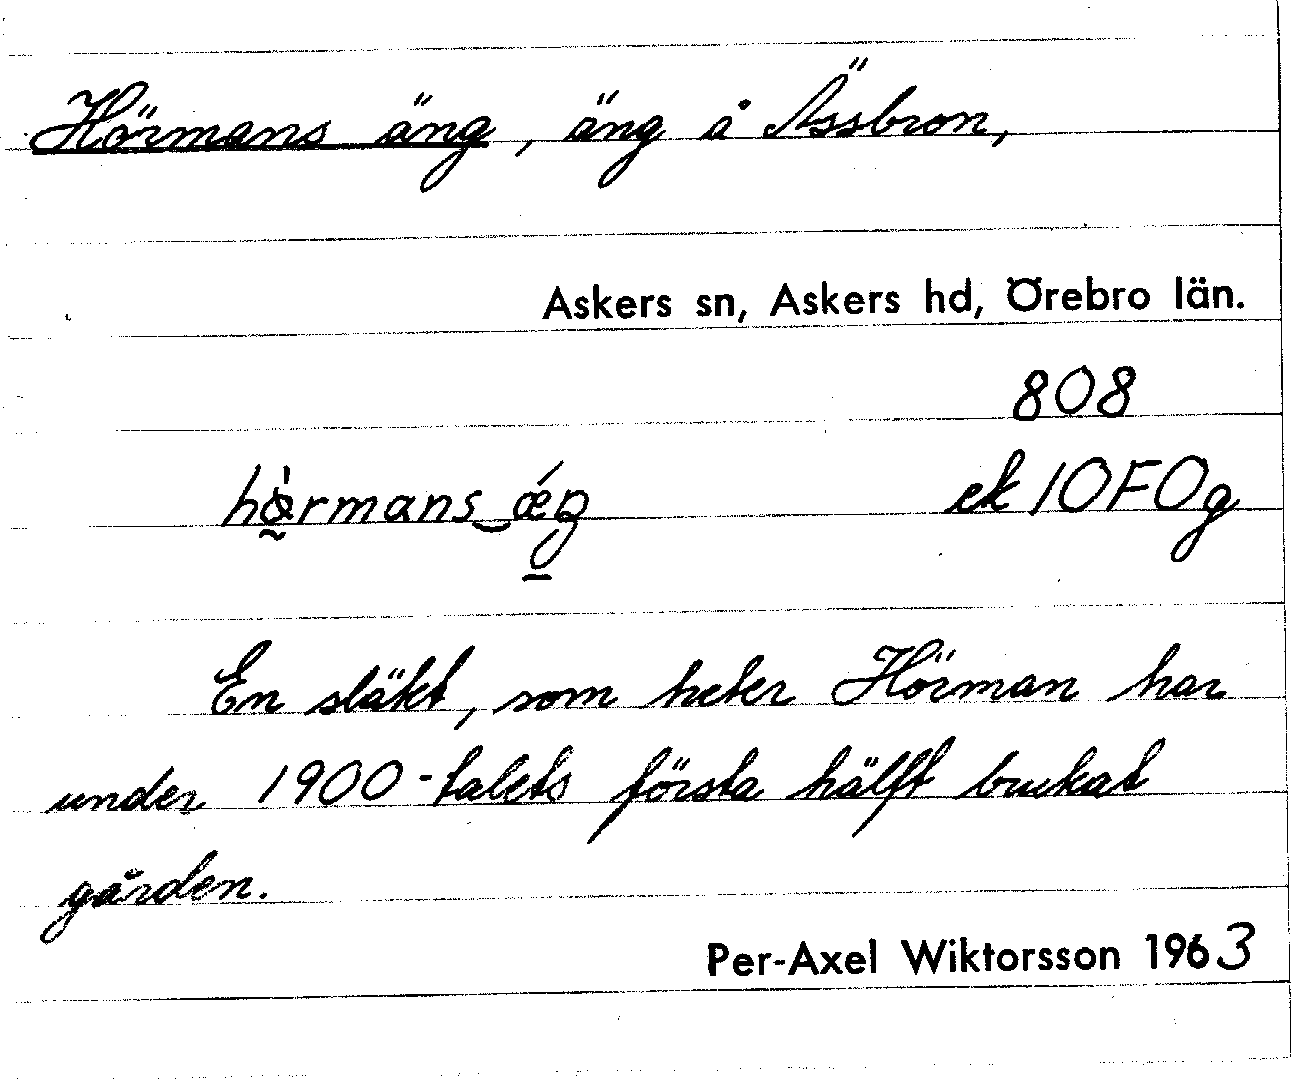 Hörmans äng, äng å Ässbron,
Askers sn, Askers hd, Örebro län.
808
ek 10F0g
En släkt, som heter Hörman har
under 1900-talets första hälft brukat
gården.
Per-Axel Wiktorsson 1963